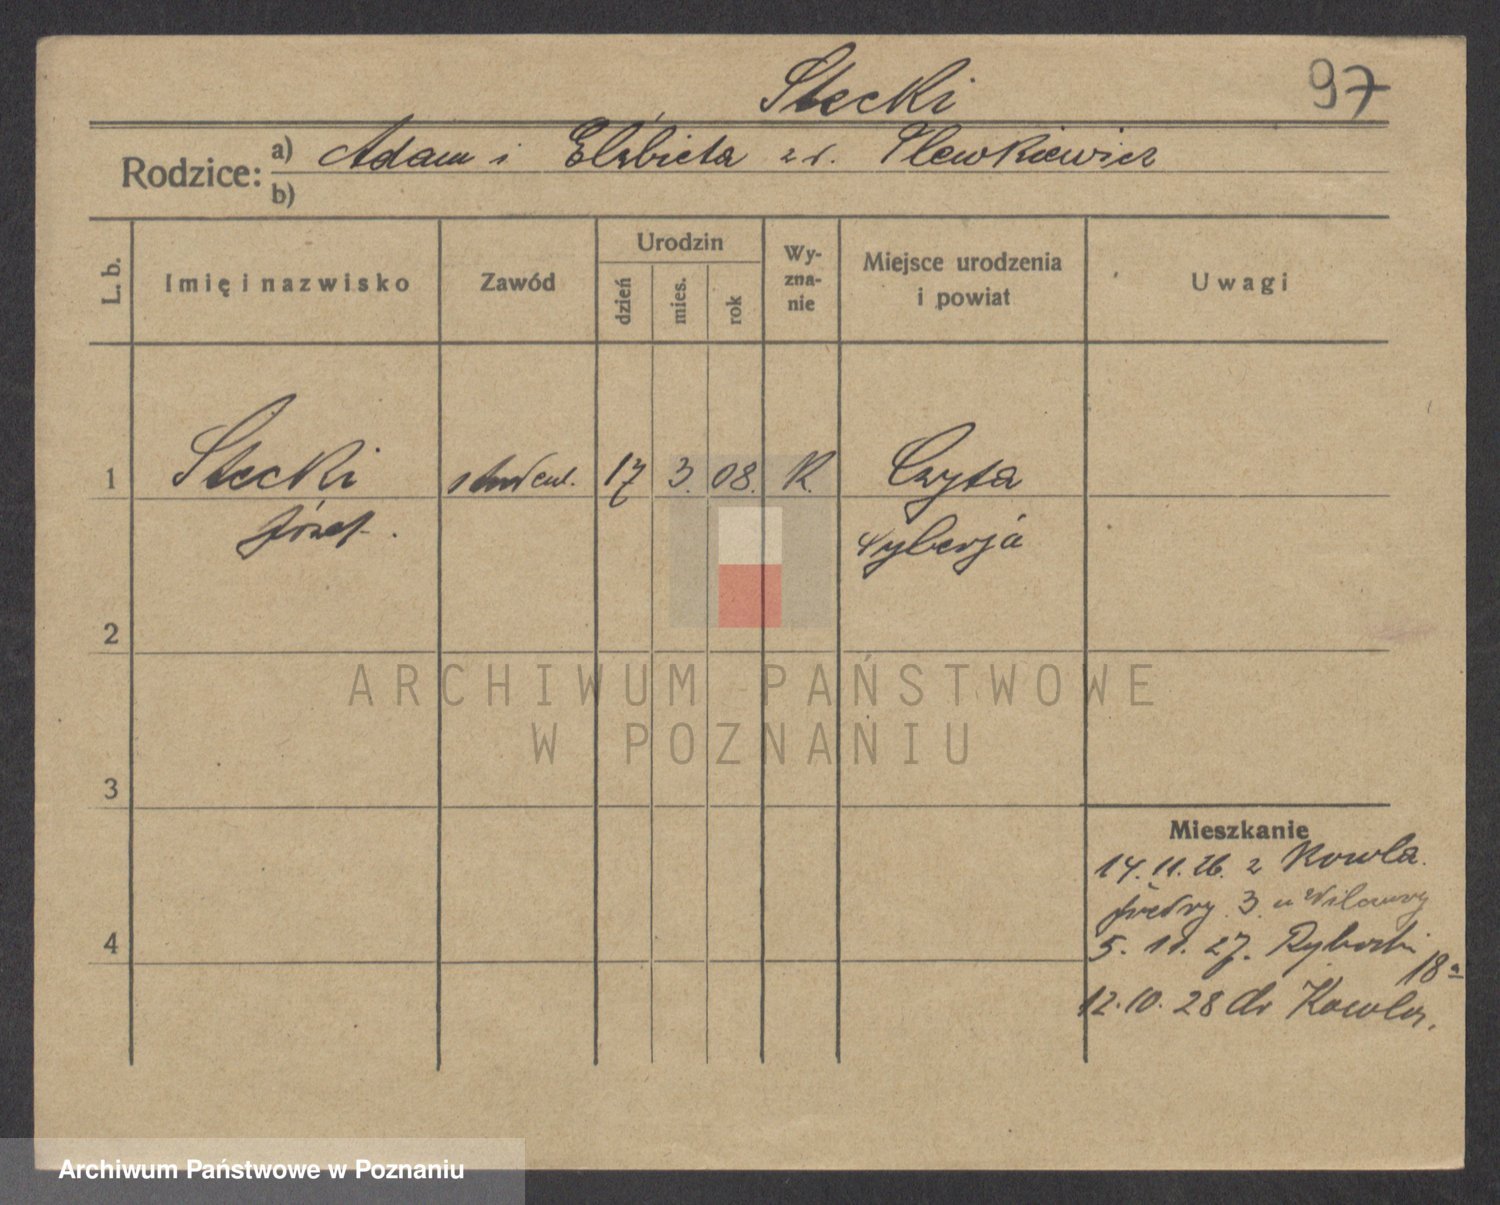 Stecki
97
Rodzice: a) Adam i Elżbieta z d.
b)
L. b.
Imię i nazwisko
Zawód
Urodzin
dzień
mies.
rok
Wy-
zna-
nie
Miejsce urodzenia
i powiat
Uwagi
1 Stecki student. 17 3. 08. R. Czyta
Józef. Syberja
2
ARCHIWUM PAŃSTWOWE
W POZNANIU
3
Mieszkanie
14.11.26. z Kowla.
Fredry 3. u
4
5. 11. 27. Rybaki
18a
12.10.28 do Kowla.
Archiwum Państwowe w Poznaniu